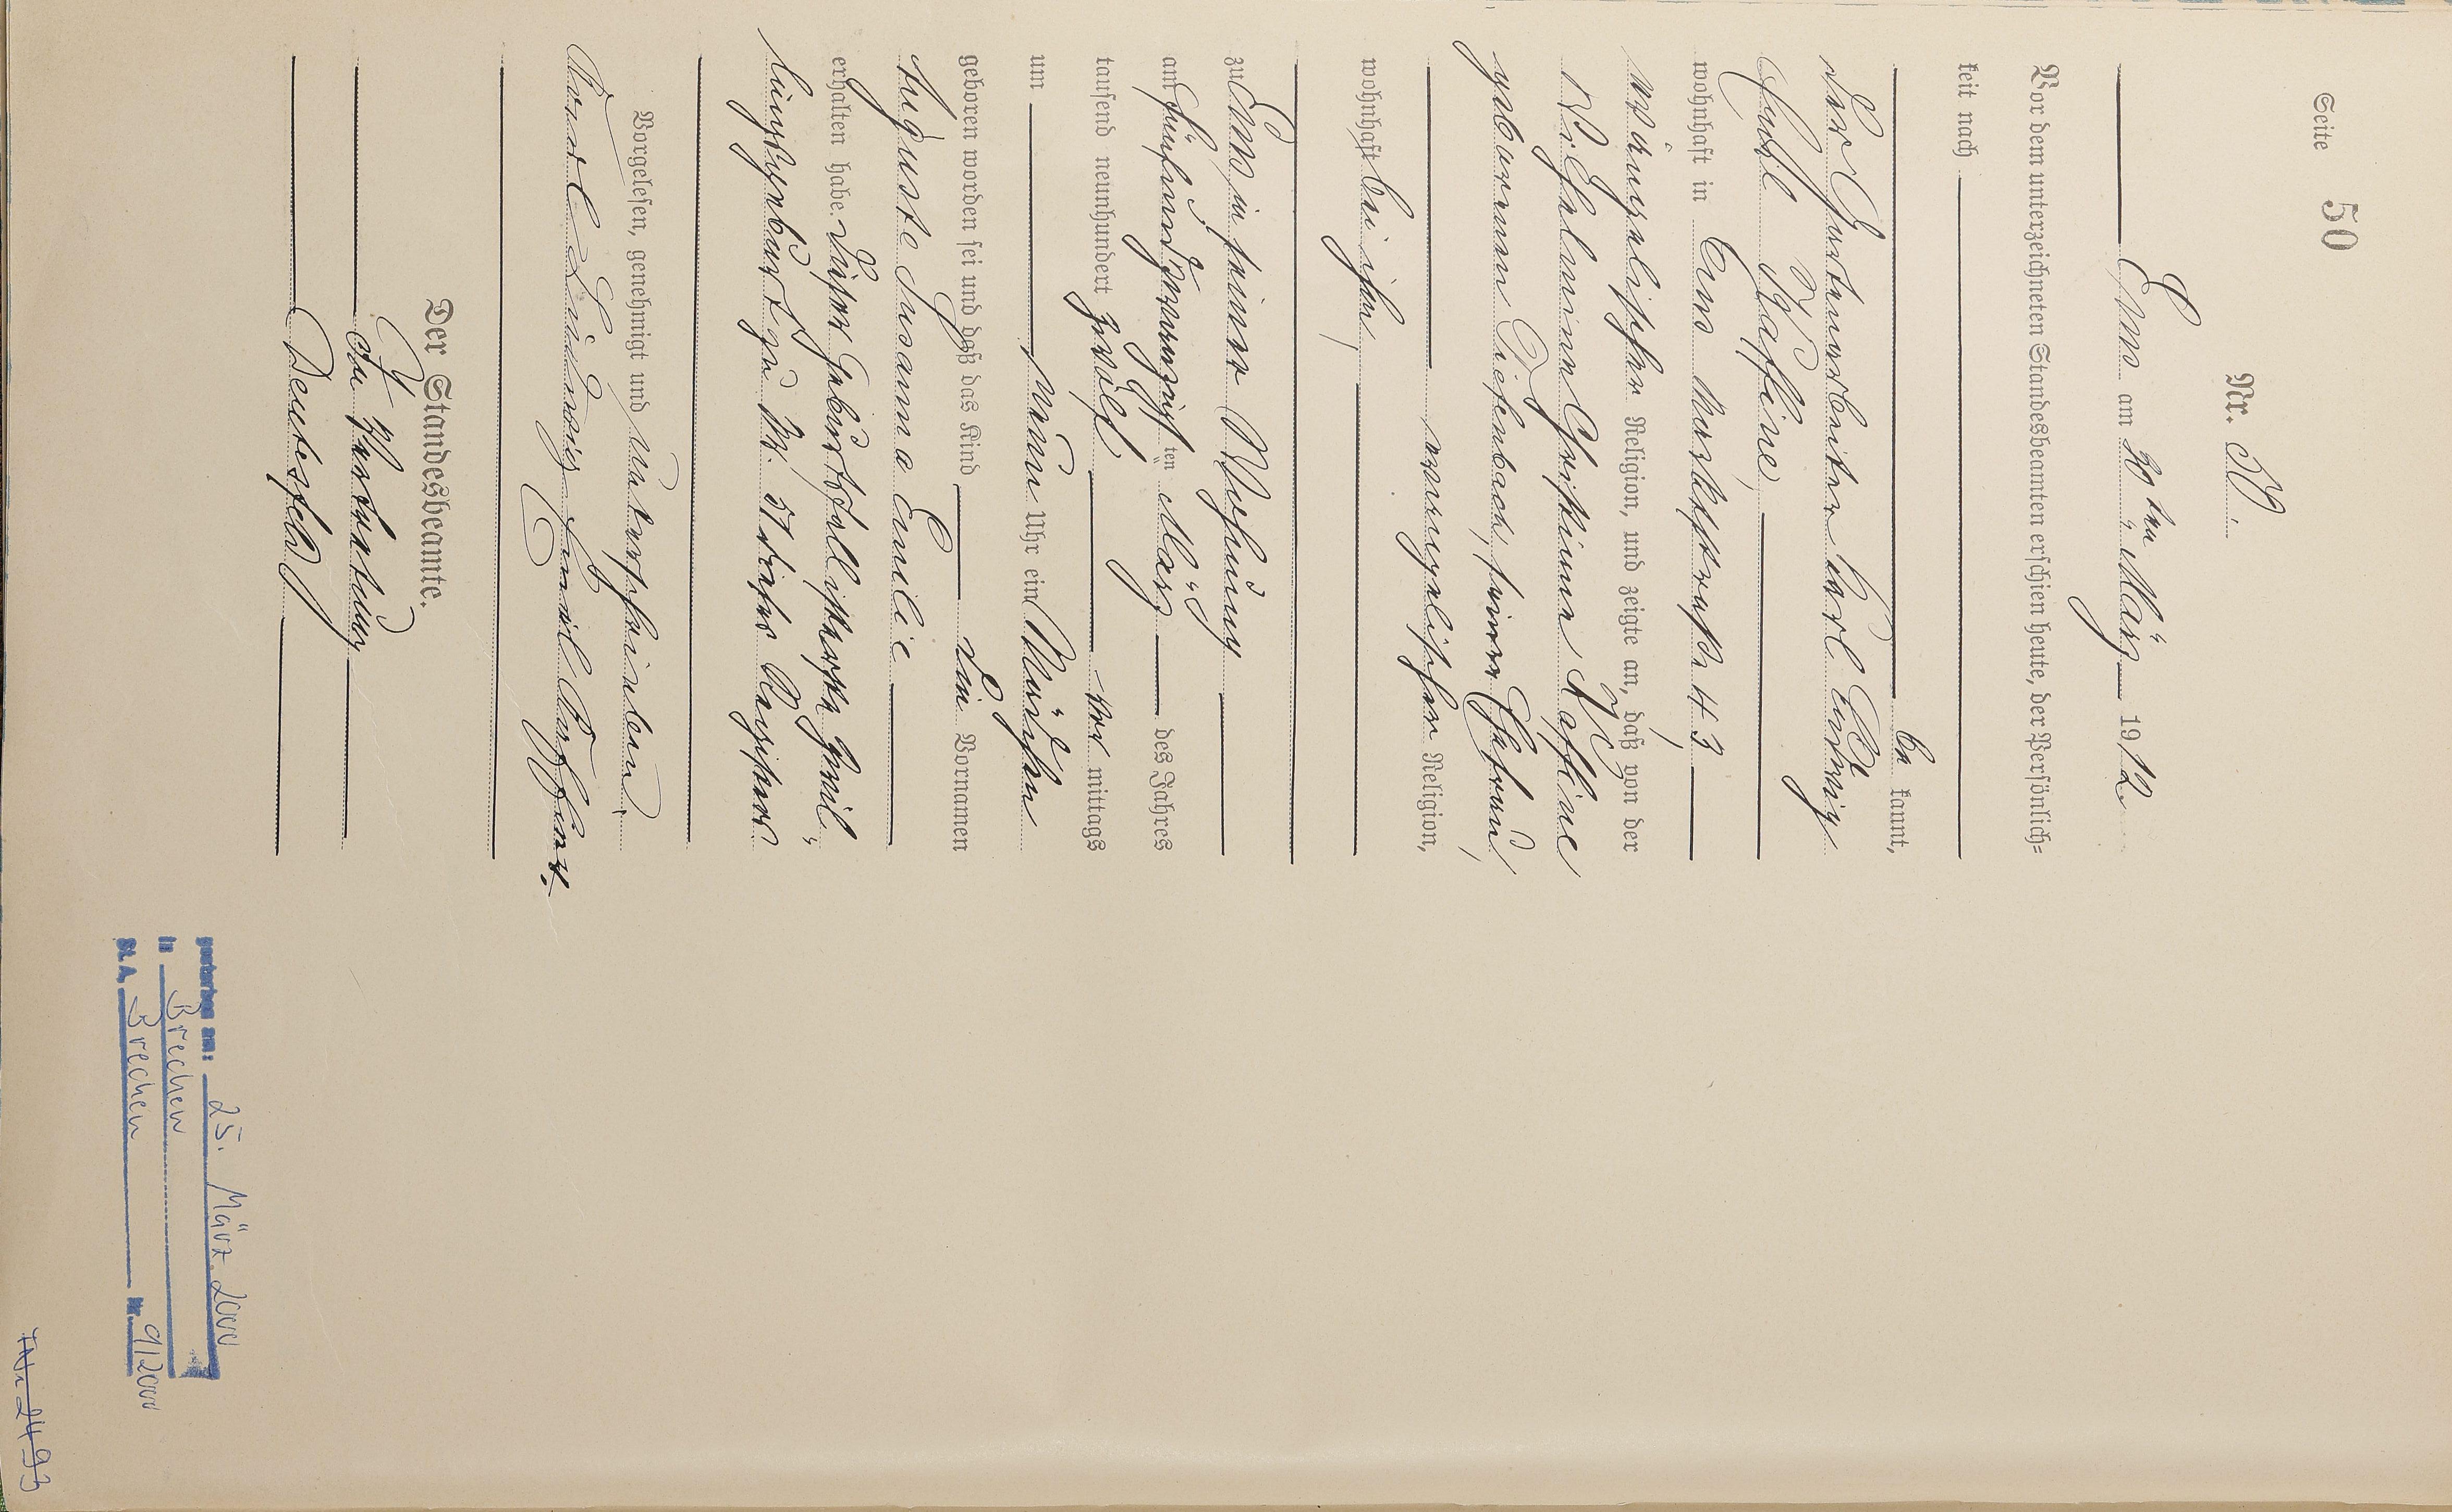 Seite 50
Nr. 50.
Ems am 30ten März 1912
Vor dem unterzeichneten Standesbeamten erschien heute, der Persönlich=
keit nach
be kannt,
der Gartenarbeiter Karl Ludwig
Emil Kaffine,
wohnhaft in Ems Marktstraße 43,
evangelischer Religion, und zeigte an, daß von der
Wilhelmine Christiane Kaffine
geborenen Diefenbach, seiner Ehefrau,
evangelischer Religion,
wohnhaft bei ihm,
zu Ems in seiner Wohnung
am fünfundzwanzigsten März des Jahres
tausend neunhundert zwölf vor mittags
um neun Uhr ein Mädchen
geboren worden sei und daß das Kind die Vornamen
Auguste Susanna Emilie
erhalten habe. Dieser Geburtsfall ist erste Zwil"
lingsgeburt zu Nr. 51 dieses Registers
Vorgelesen, genehmigt und unterschrieben
Karl Ludwig Emil Kaffine.
Der Standesbeamte.
In Vertretung
Deutesfeld
gestorben am: 25. März 2000
in Brechen
St. A. Brechen Nr. 9/2000